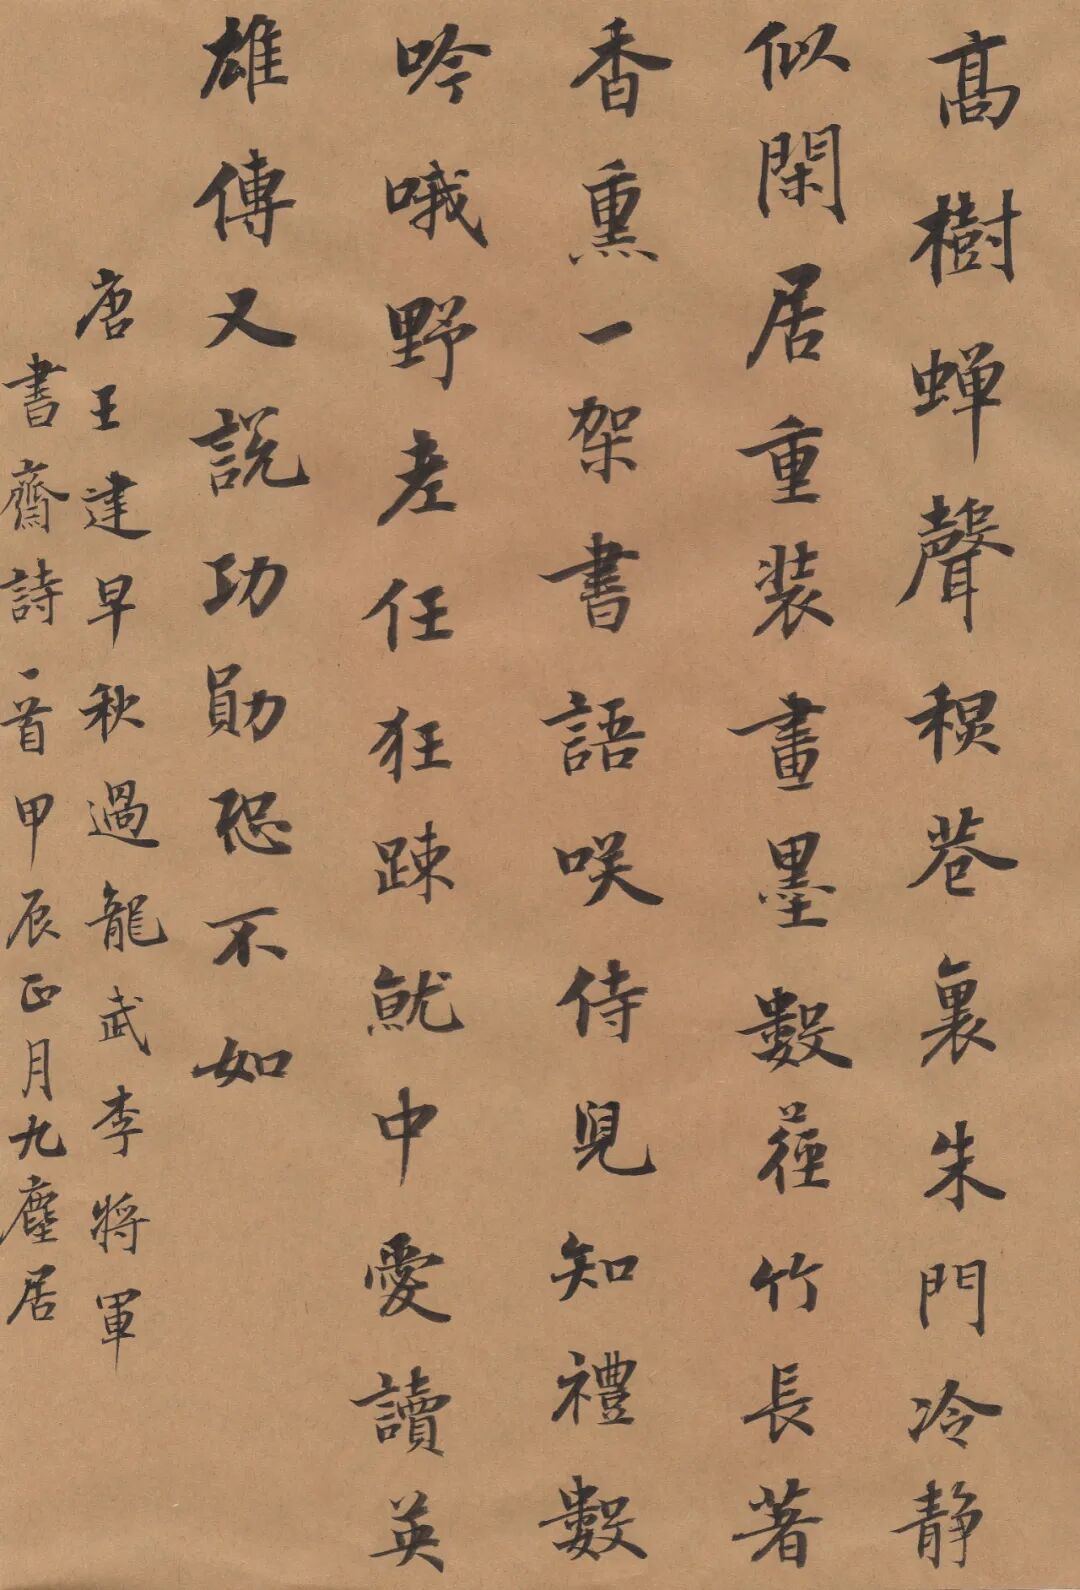 高樹蝉聲巷裏朱門冷静
似閑居重装畫墨數莖竹長著
香熏一架書語咲侍兒知禮數
吟哦野老任狂踈就中愛讀英
雄傳又説功勛恐不如
唐王建早秋過龍武李將軍
書齋詩一首甲辰正月九塵居